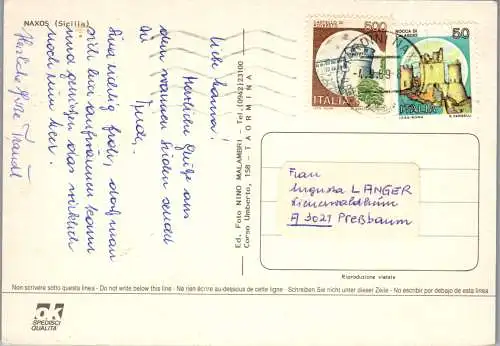 NAXOS (Sicilia)
Liebe Hanna!
Herzliche Grüße aus
dem warmen Süden sendet
Dir
Trude.
Bin richtig froh, daß man
sich hier aufwärmen kann
und genießen das wirklich
noch am Meer.
Herzliche Grüße Traudl
Ed. Foto NINO MALAMBRI - Tel. (0942)23100
Corso Umberto, 158 - TAORMINA
500
ITALIA
ROCCA DI
CALASCIO
50
ITALIA
I.P.Z.S. ROMA
Frau
Augusta LANGER
A 3021 Preßbaum
Riproduzione vietata
Non scrivere sotto questa linea - Do not write below this line - Ne rien écrire au-dessous de cette ligne - Schreiben Sie nicht unter dieser Zeile - No escribir por debajo de esta linea
ok
SPEDISCI
QUALITÀ